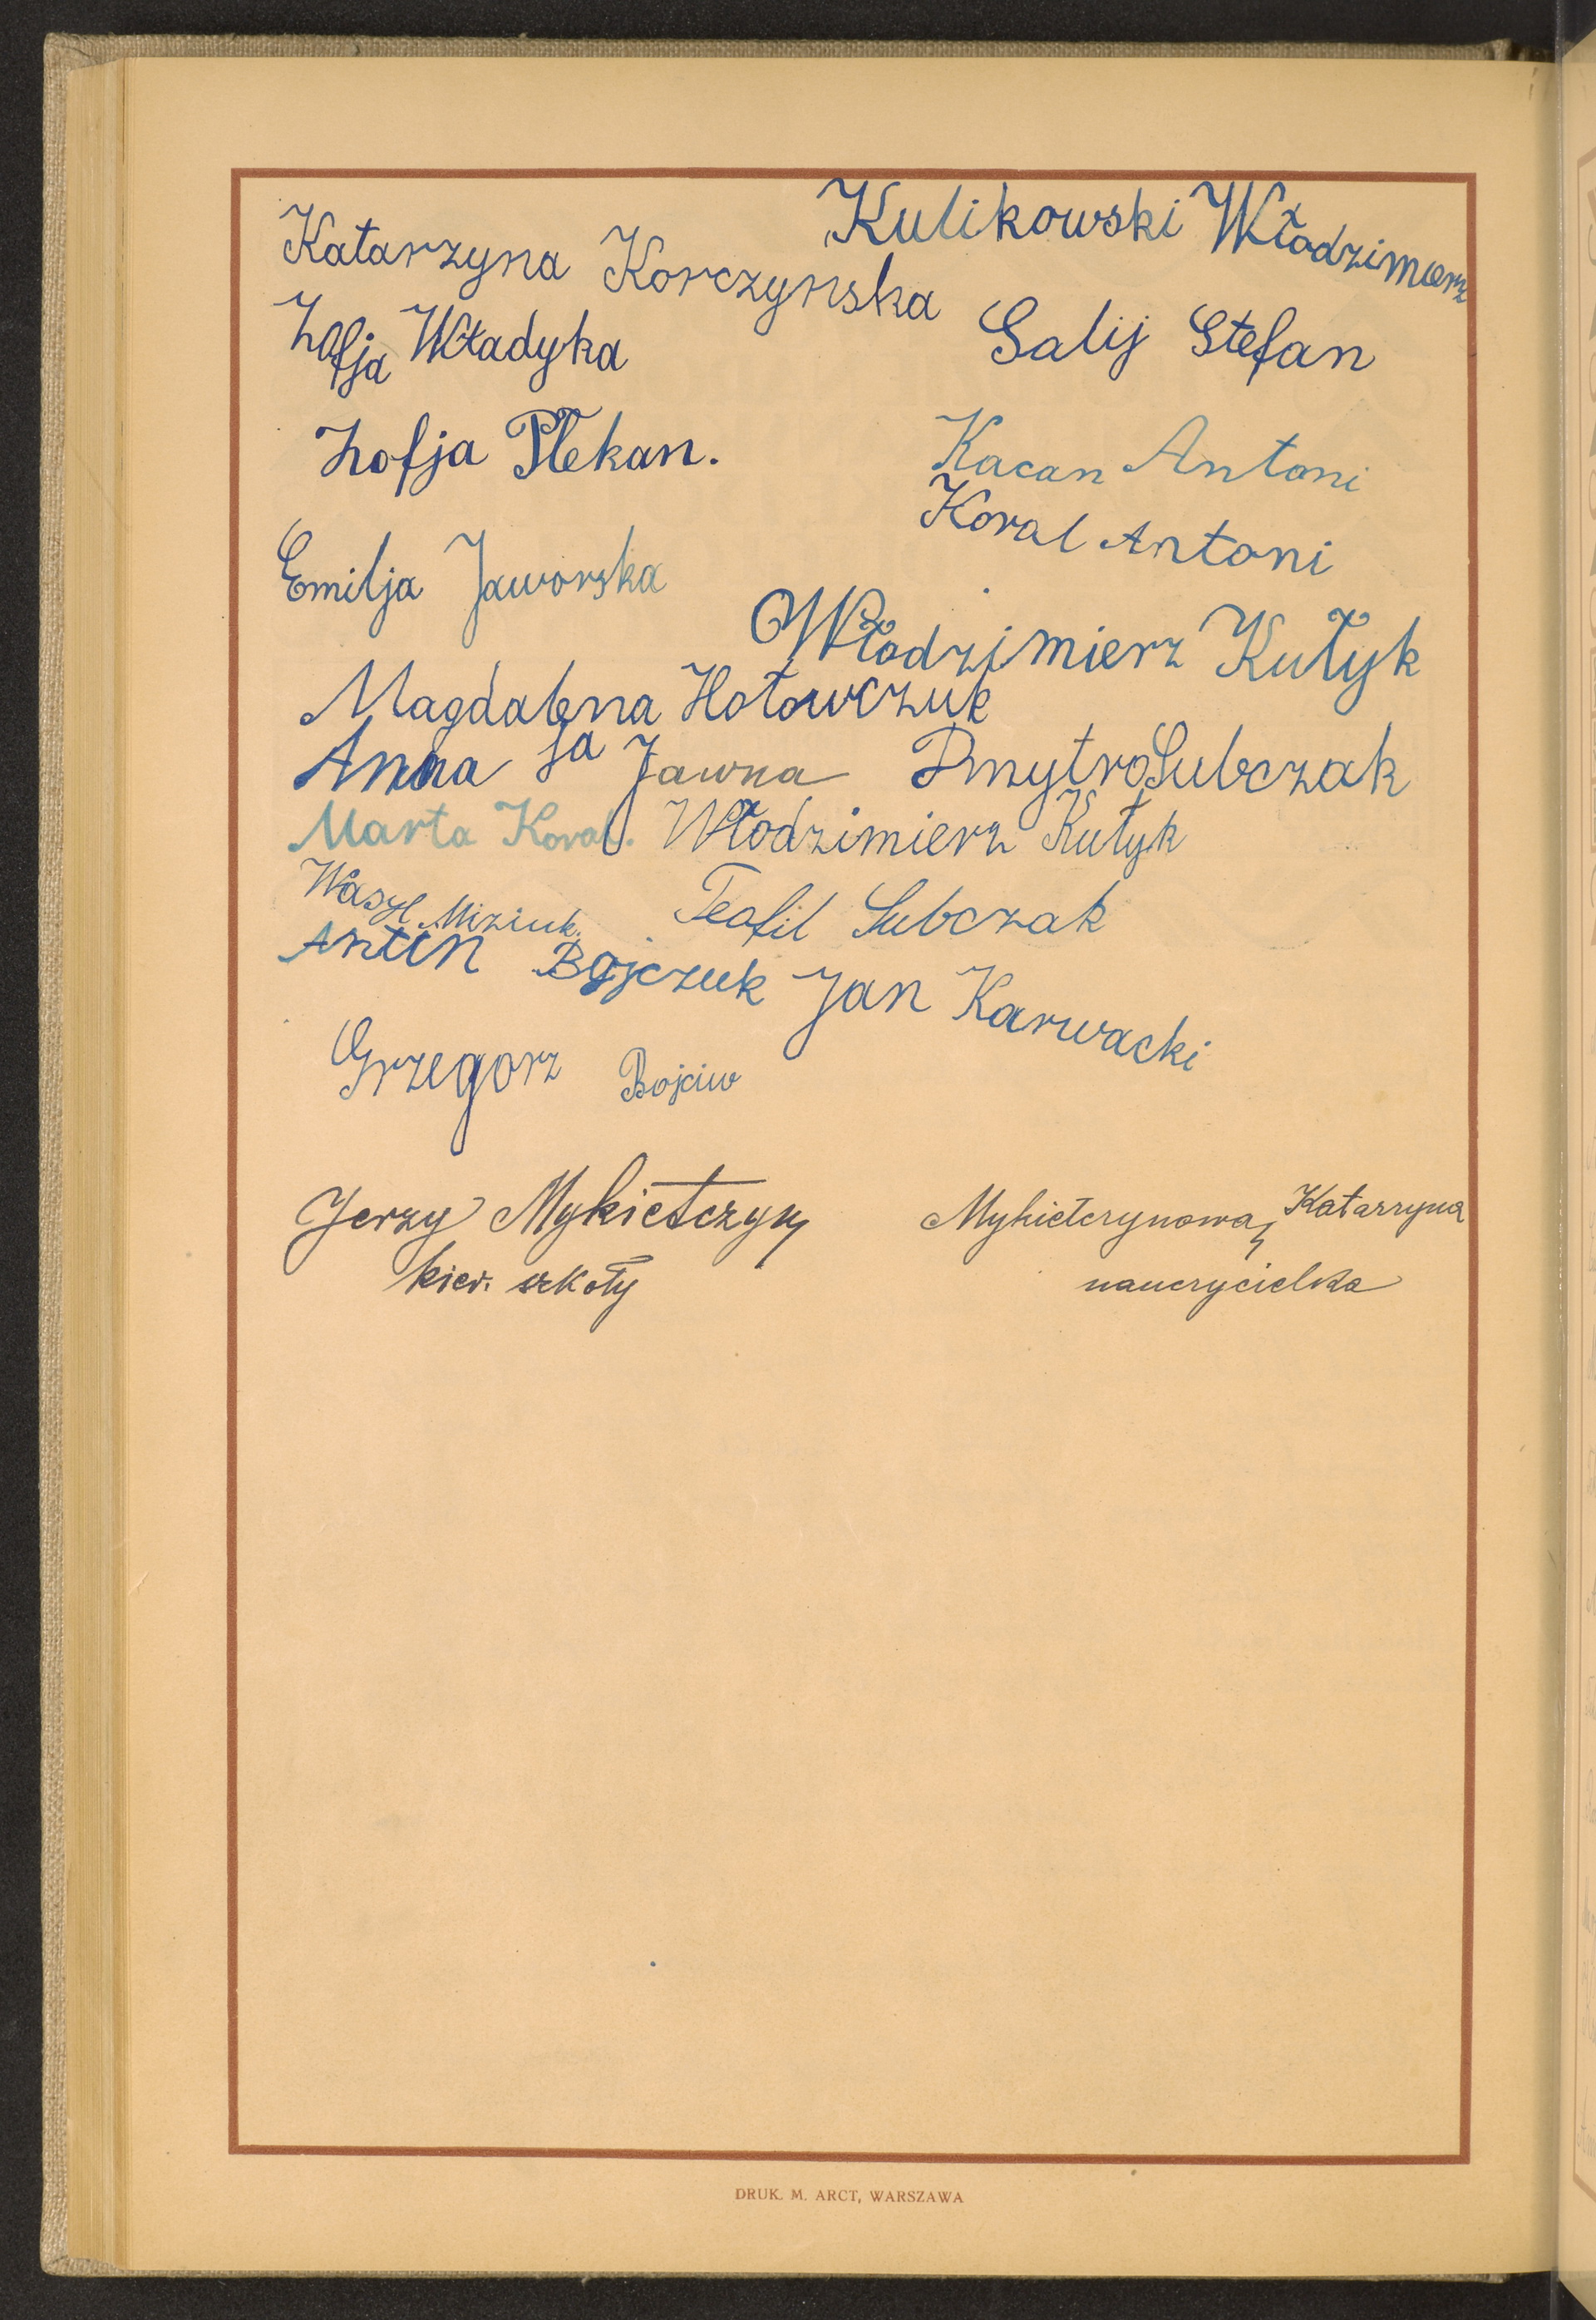 Kulikowski Włodzimierz
Katarzyna Korczynska
Zofja Władyka
Galij Stefan
Zofja Plekan.
Kacan Antoni
Koval Antoni
Emilja Jaworska
Włodzimierz Kułyk
Magdalena Hołowczuk
Anna Ja Jawna
Dmytro Subczak
Marta Koval.
Włodzimierz Kułyk
Wasyl Miziuk.
Teofil Subczak
Antin Bojczuk
Jan Karwacki
Grzegorz Bojciw
Jerzy Mykietczyn
kier. szkoły
Mykietczynowa Katarzyna
nauczycielka
DRUK. M. ARCT, WARSZAWA